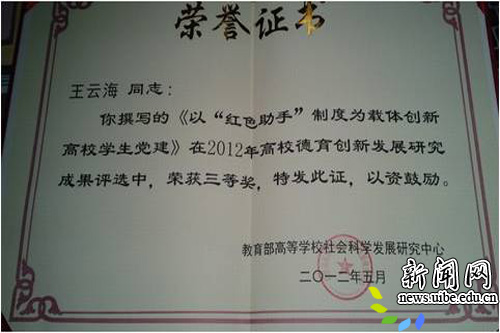 荣誉证书
王云海 同志：
你撰写的《以“红色助手”制度为载体创新
高校学生党建》在2012年高校德育创新发展研究
成果评选中，荣获三等奖，特发此证，以资鼓励。
教育部高等学校社会科学发展研究中心
二〇一二年五月
新闻网
news.uibe.edu.cn